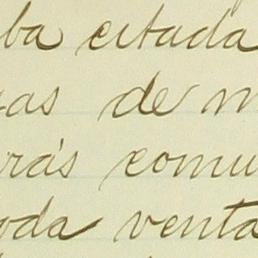 ba citada
as de m
rás comu
oda venta